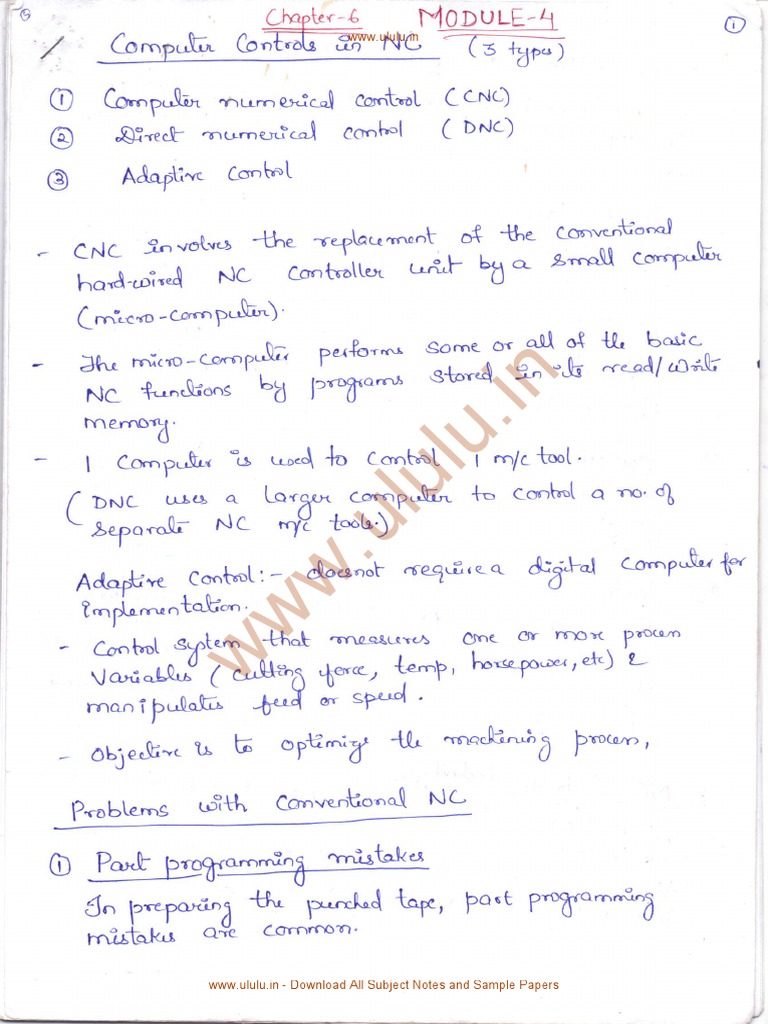 Chapter-6 MODULE-4 1
www.ululu.in
Computer Controls in NC (3 types)
1 Computer numerical control (CNC)
2 Direct numerical control (DNC)
3 Adaptive Control
- CNC involves the replacement of the conventional
hard-wired NC controller unit by a small computer
(micro-computer).
- The micro-computer performs some or all of the basic
NC functions by programs stored in its read/write
memory.
- 1 Computer is used to control 1 m/c tool.
(DNC uses a larger computer to control a no. of
separate NC m/c tools.)
Adaptive Control:- doesnot require a digital computer for
implementation.
- Control system that measures one or more process
variables (cutting force, temp, horsepower, etc) &
manipulates feed or speed.
- Objective is to optimize the machining process,
Problems with Conventional NC
1 Part programming mistakes
In preparing the punched tape, part programming
mistakes are common.
www.ululu.in
www.ululu.in - Download All Subject Notes and Sample Papers